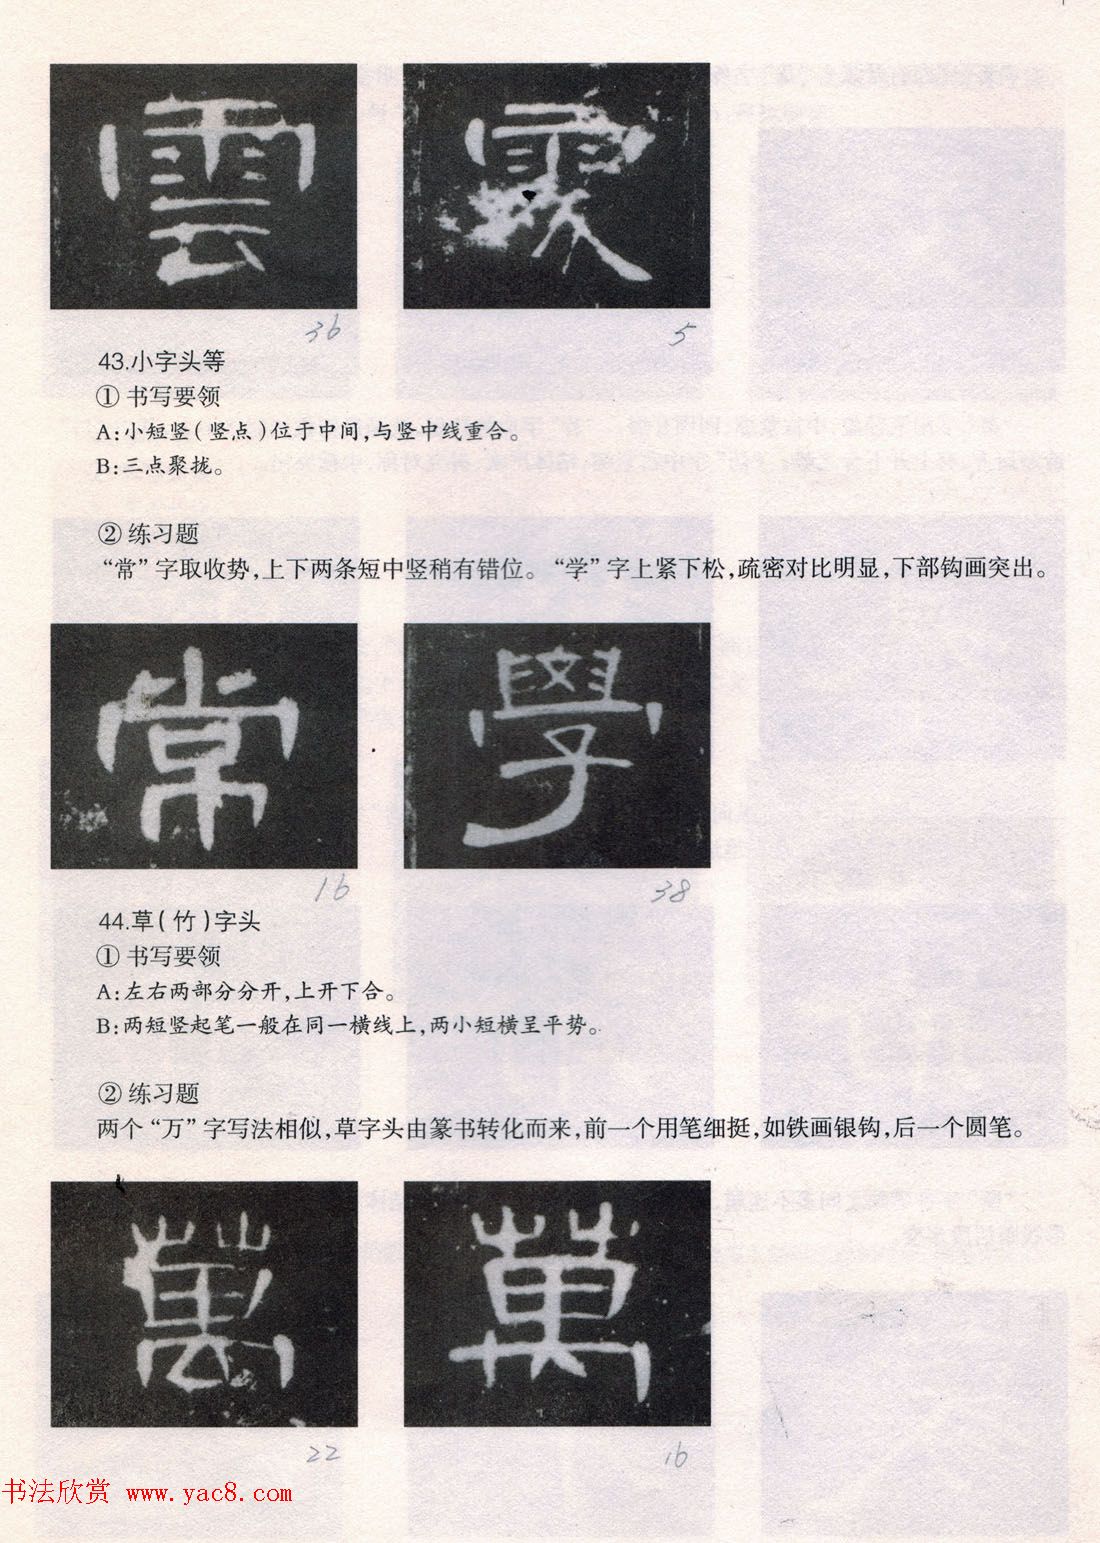 雲
36 5
43.小字头等
① 书写要领
A:小短竖(竖点)位于中间,与竖中线重合。
B:三点聚拢。
② 练习题
“常”字取收势,上下两条短中竖稍有错位。“学”字上紧下松,疏密对比明显,下部钩画突出。
常 學
16 38
44.草(竹)字头
① 书写要领
A:左右两部分分开,上开下合。
B:两短竖起笔一般在同一横线上,两小短横呈平势。
② 练习题
两个“万”字写法相似,草字头由篆书转化而来,前一个用笔细挺,如铁画银钩,后一个圆笔。
萬 萬
22 16
书法欣赏 www.yac8.com